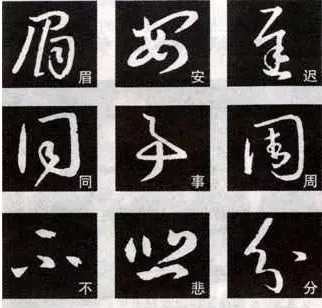 眉 安 迟
眉 安 迟
同 事 周
同 事 周
不 悲 分
不 悲 分